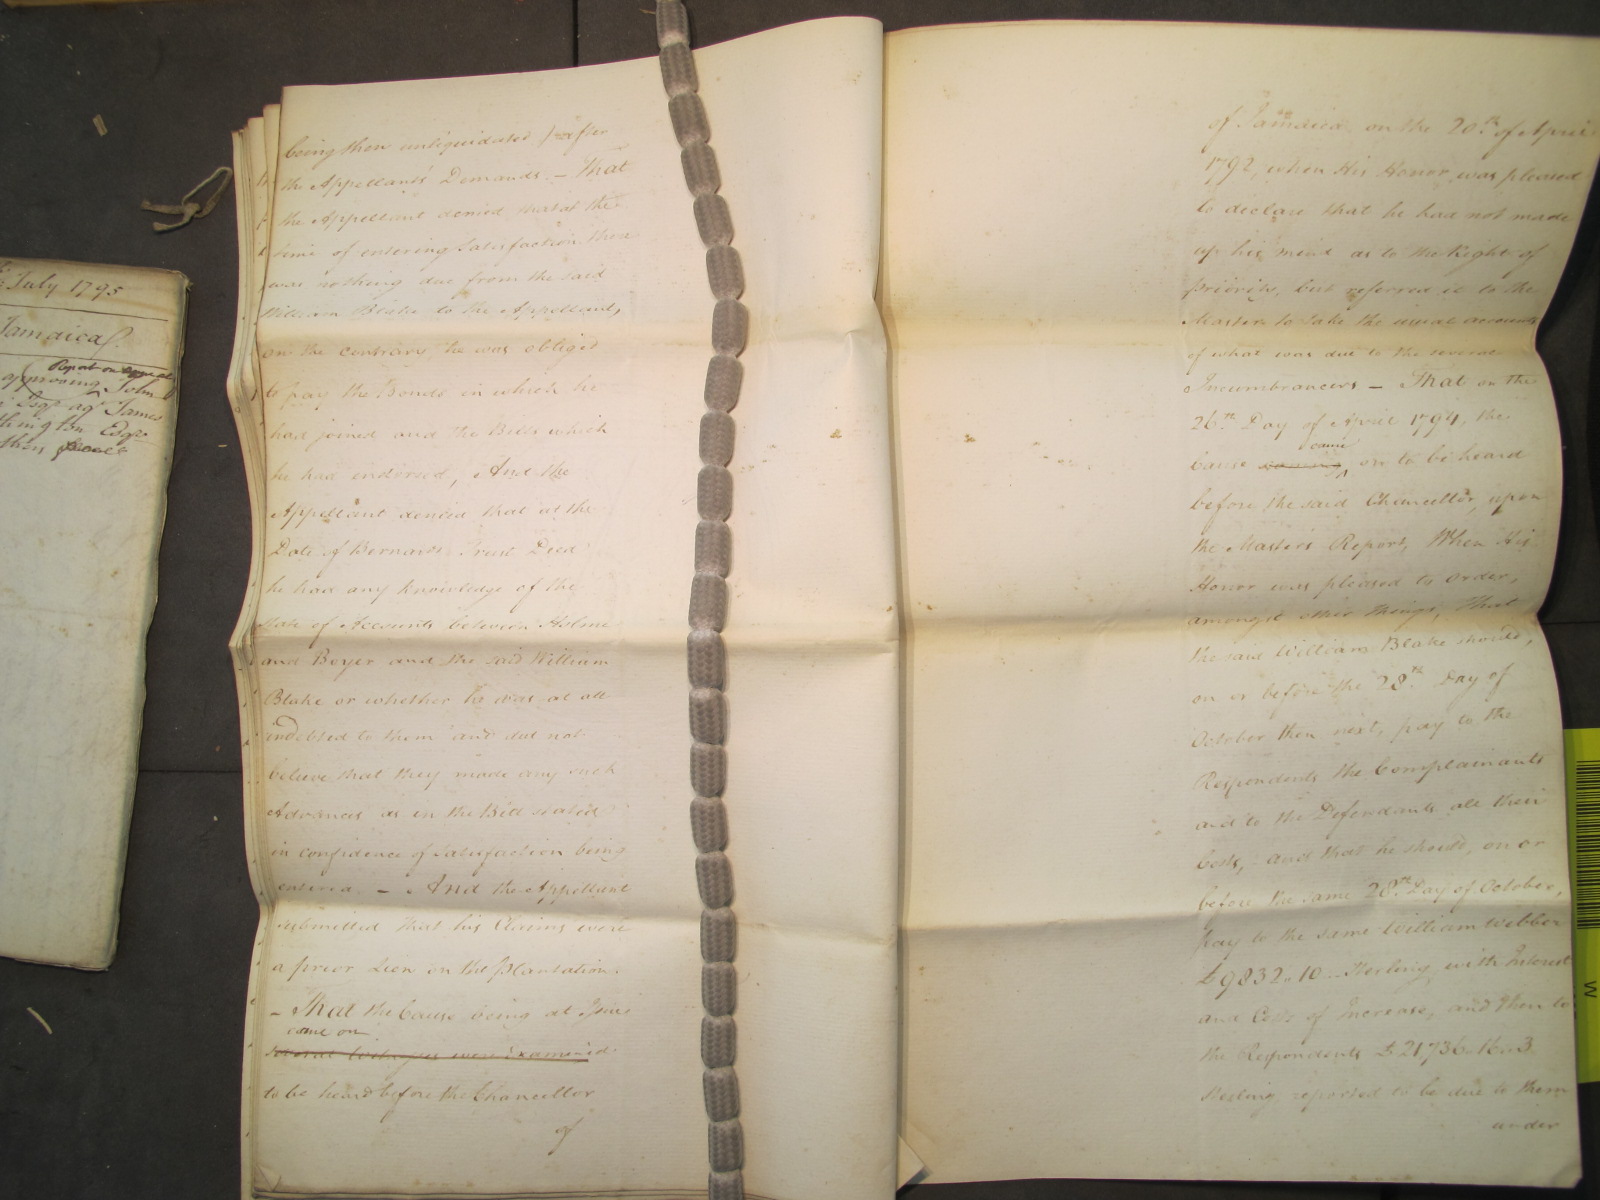 July 1795
Jamaica
Report on appeal
approving John
Esqr agt James
Esqr
being then unliquidated) after
the Appellants' Demands. – That
the Appellant denied that at the
time of entering Satisfaction there
was nothing due from the said
William Blake to the Appellant,
on the contrary, he was obliged
to pay the Bonds in which he
had joined and the Bills which
he had endorsed, And the
Appellant denied that at the
Date of Bernards Trust Deed
he had any knowledge of the
State of Accounts between Holme
and Boyer and the said William
Blake or whether he was at all
indebted to them and did not
believe that they made any such
Advances as in the Bill stated
in confidence of Satisfaction being
entered. – And the Appellant
submitted that his Claims were
a prior Lien on the Plantation.
– That the Cause being at Issue
came on
several Witnesses were Examined
to be heard before the Chancellor
of
of Jamaica on the 20th of April
1792, when His Honor was pleased
to declare that he had not made
up his mind as to the Right of
priority, but referred it to the
Master to take the usual accounts
of what was due to the several
Incumbrancers – That on the
26th Day of April 1794, the
came
Cause on to be heard
before the said Chancellor, upon
the Masters Report, When His
Honor was pleased to order,
amongst other things, That
the said William Blake should,
on or before the 28th Day of
October then next, pay to the
Respondents the Complainants
and to the Defendants all their
Costs, and that he should, on or
before the same 28th Day of October,
pay to the same William Webber
£9832.10 Sterling with Interest
and Costs of Increase, and then to
the Respondents £21736.16.3
Sterling reported to be due to them
under
W